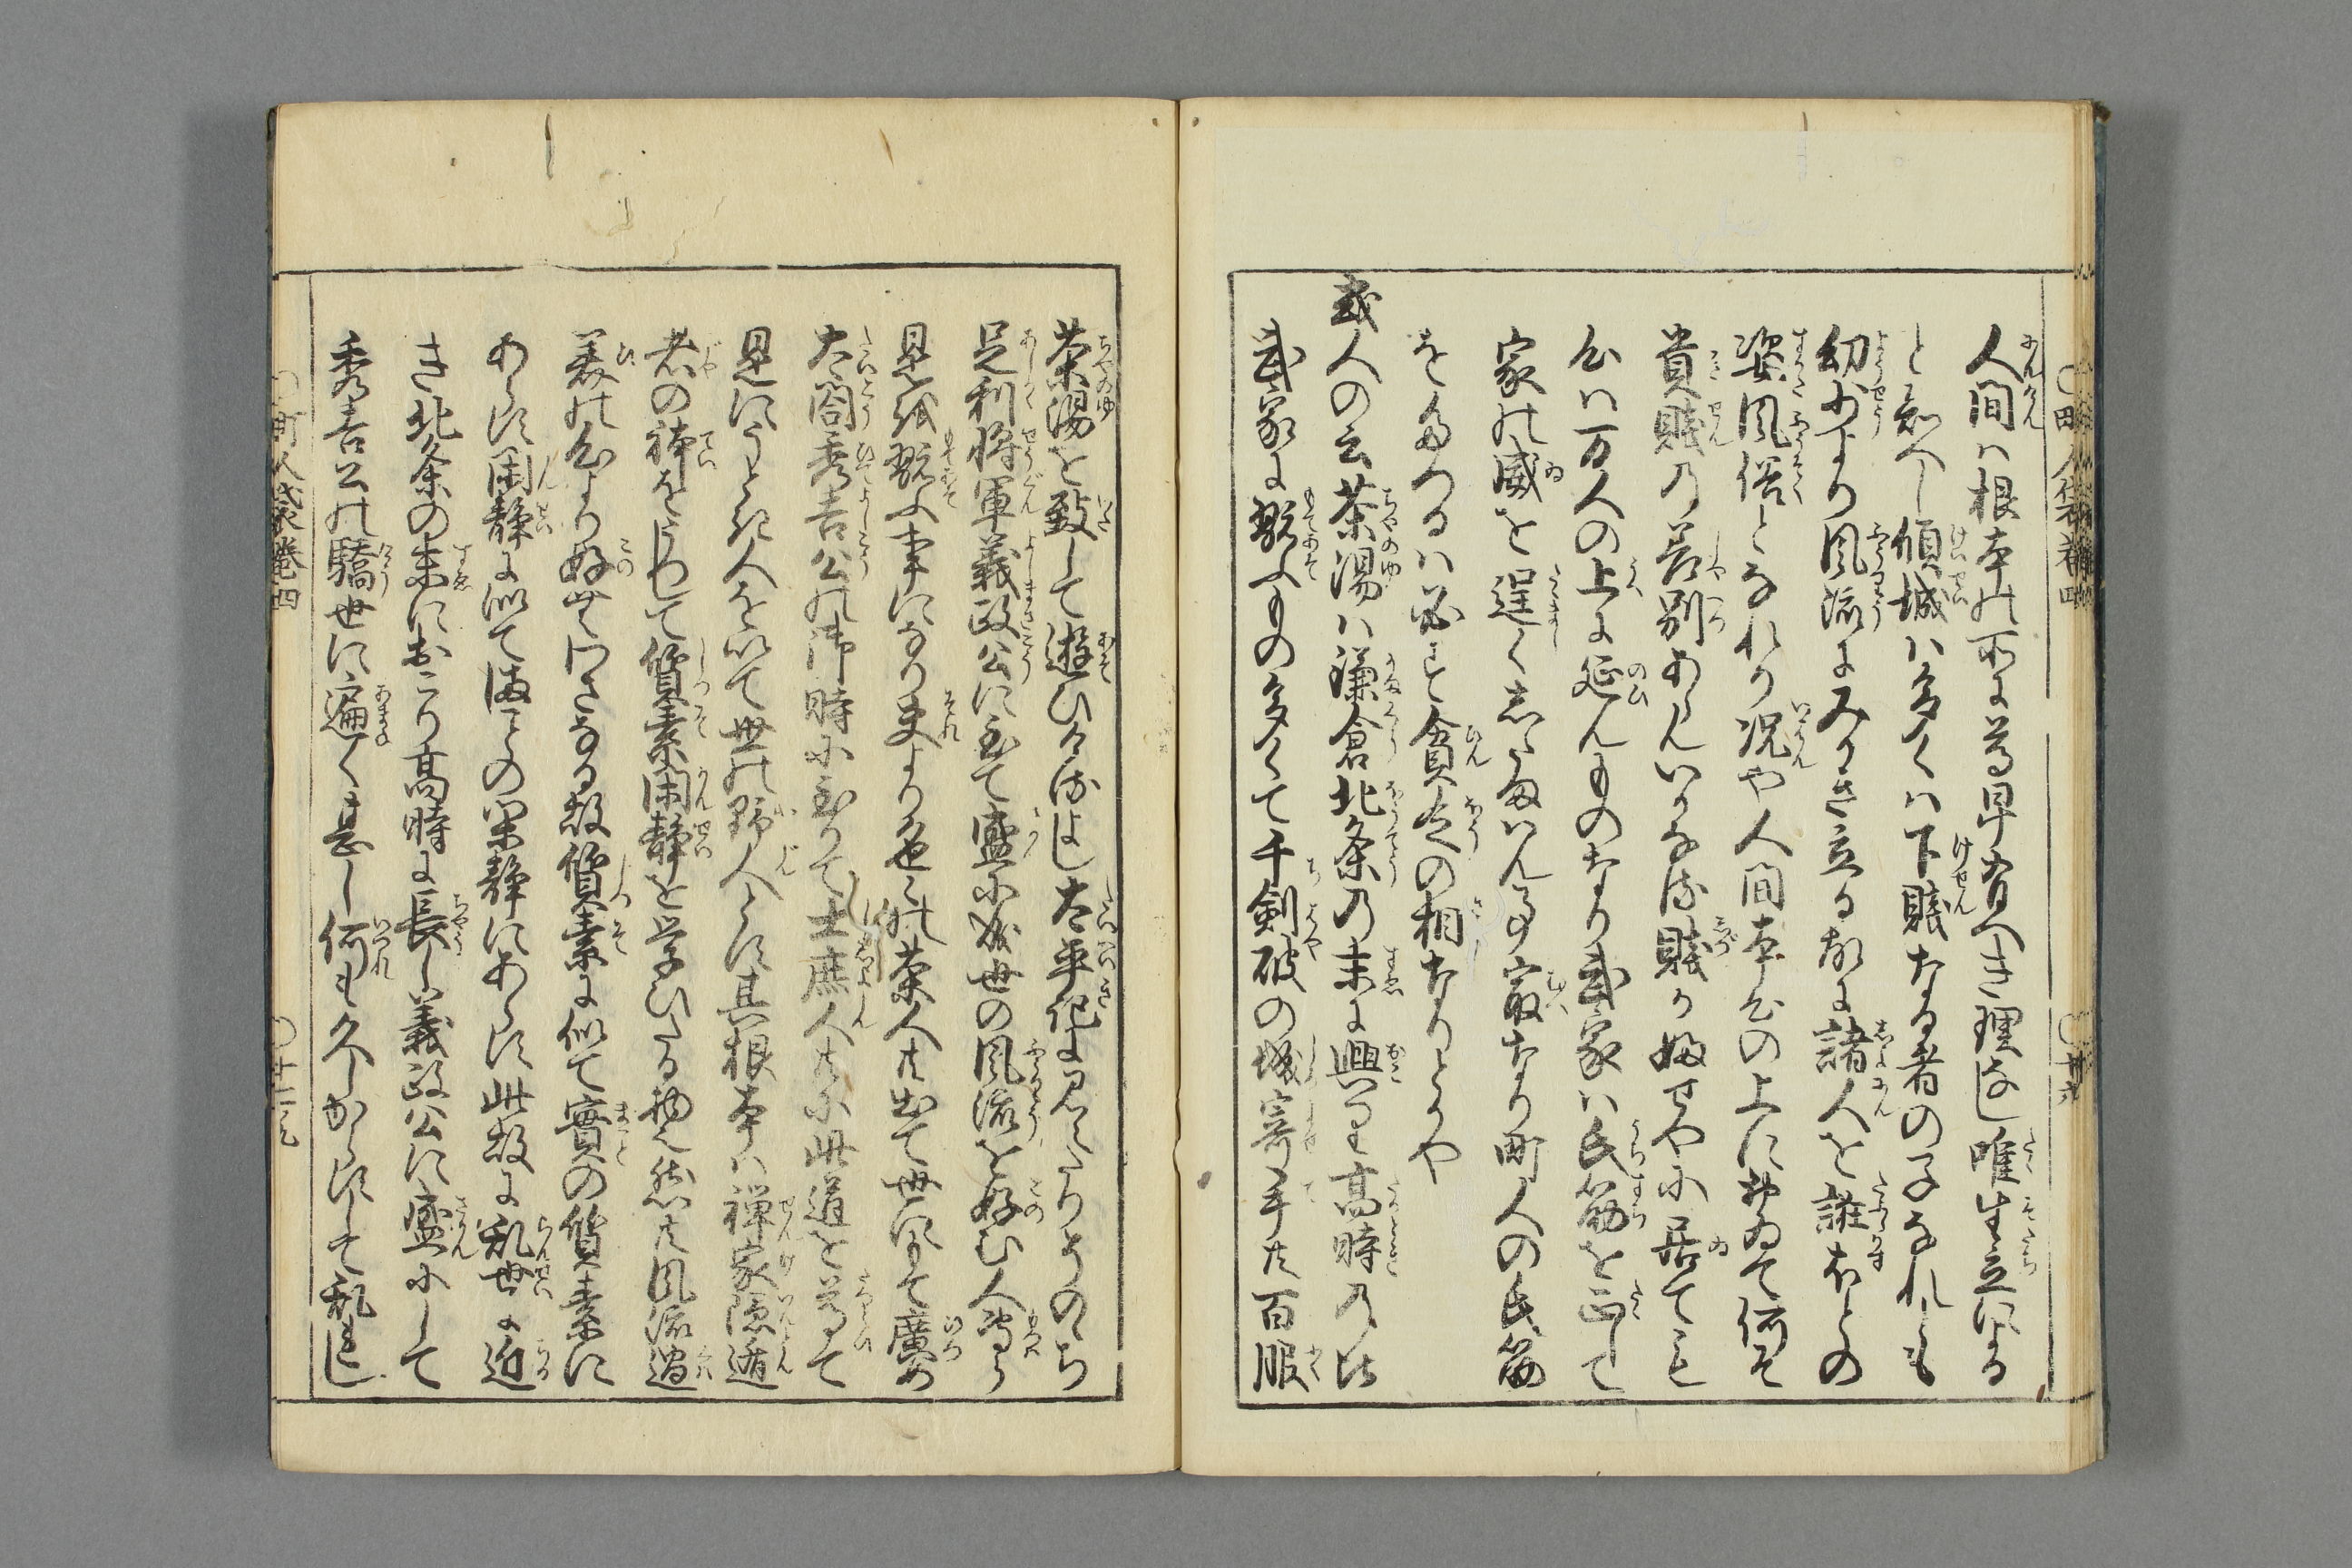 人間ハ根本の所に尊卑有へき理なし唯生立による
と知へし傾城ハ多くハ下賤なる者の子なれとも
幼少より風流にみかき立る故に諸人を誑おとの
姿風俗となれり况や人間本心の上におゐて何そ
貴賤の差別あらんいかなる賤か婦せやに居ても
心ハ万人の上に延んものなり武家ハ氏筋を正して
家の威を逞くしたまハん事最なり町人の氏筋
をたつるハ必す貧乏の相なりとかや
或人の云茶湯ハ鎌倉北条の末に興りて高時の比
武家に翫ふもの多くて千剣破の城寄手共百服
茶湯を致して遊ひけるよし太平記に見えたりそのゝち
足利将軍義政公に至て盛に成世の風流を好む人専ら
是を翫ふ事になり夫より色々の茶人共出て世に写て廣め
太閤秀吉公の御時に至りて士庶人共に此道を尊て
是にうとき人を以て世の野人とす其根本ハ禅家隠遁
者の棒をうつして質素閑静を学ひたる物也然共風流過
美の心より好出てしわさなる故質素に似て實の質素に
あらす閑静に似てまことの閑静にあらす此故に乱世に近
き北条の末におこり高時に長し義政公に盛にして
秀吉公の驕世に遍く甚し何も久しからすして乱を生し
町人袋巻四